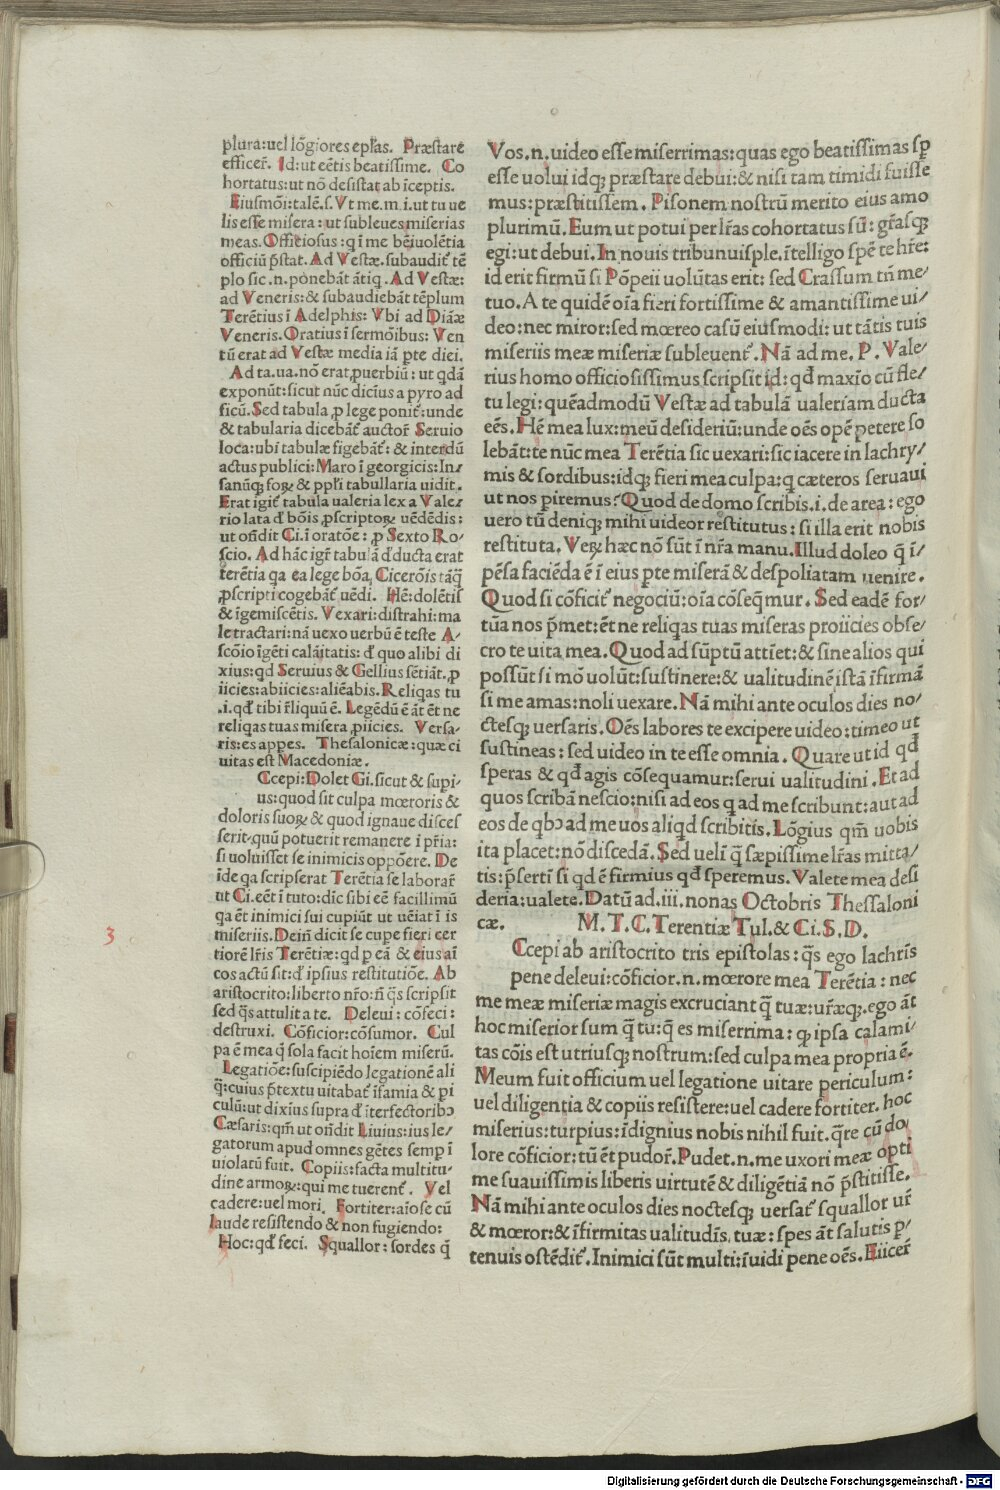 plura:uel lōgiores epłas. Præstare
efficeř. Id:ut eētis beatissime. Co
hortatus:ut nō desistat ab īceptis.
Eiusmōi:talē.s.Vt me.m.i.ut tu ue
lis esse misera: ut subleues miserias
meas.Officiosus:q ī me bēiuolētia
officiū p̄stat. Ad Vestæ.subaudit̄ tē
plo sic.n.ponebāt ātiq. Ad Vestæ:
ad Veneris:& subaudiebāt tēplum
Terētius ī Adelphis: Vbi ad Diāæ
Veneris.Oratius ī sermōibus: Ven
tū erat ad Vestæ media iā pte diei.
Ad ta.ua.nō erat ꝓuerbiū: ut qdā
exponūt:sicut nūc dicius a pyro ad
ficū.Sed tabula ꝓ lege ponit̄:unde
& tabularia dicebāt̄ auctoř Seruio
loca:ubi tabulæ figebāt̄: & interdū
actus publici:Maro ī georgicis:In/
sanūq; foꝝ & ppłi tabullaria uidit.
Erat igit̄ tabula ualeria lex a Vale/
rio lata d̄ bōis ꝓscriptoꝝ uēdēdis:
ut oñdit Ci.ī oratōe: ꝓ Sexto Ro/
scio. Ad hāc igř tabulā d̄ducta erat
terētia qa ea lege bōa Cicerōis tāq̄
ꝓscripti cogebāt̄ uēdi. Hē:dolētis
& īgemiscētis. Vexari:distrahi:ma
le tractari:nā uexo uerbū ē teste A/
scōio īgēti calāitatis: d̄ quo alibi di
xius:qd Seruius & Gellius sētiāt.ꝓ
iicies:abiicies:aliēabis.Reliqas tu
.i.qd̄ tibi řliquū ē. Legēdū ē āt ēt ne
reliqas tuas misera ꝓiicies. Versa/
ris:es appes. Thesalonicæ:quæ ci
uitas est Macedoniæ.
Ccepi:Dolet Ci.sicut & supi/
us:quod sit culpa mœroris &
doloris suoꝝ & quod ignaue disces
serit.quū potuerit remanere ī přia:
si uoluisset se inimicis oppōere. De
ide qa scripserat Terētia se laborař
ut Ci.eēt ī tuto:dic sibi eē facillimū
qa ēt inimici sui cupiūt ut uēiat ī is
miseriis.Deiñ dicit se cupe fieri cer
tiorē lřis Terētiæ:qd p eā & eius aī
cos actū sit:d̄ ipsius restitutiōe. Ab
aristocrito:liberto nřo:ñ q̄s scripsit
sed q̄s attulit a te. Deleui: cōfeci:
destruxi. Cōficior:cōsumor. Cul
pa ē mea q̄ sola facit hoiem miserū.
Legatiōe:suscipiēdo legationē ali
q̄:cuius p̄textu uitabat̄ īfamia & pi
culū:ut dixius supra d̄ īterfectoribↄ
Cæsaris:qm̄ ut oñdit Liuius:ius le/
gatorum apud omnes gētes semp ī
uiolatū fuit. Copiis:facta multitu/
dine armoꝝ:qui me tuerent̄. Vel
cadere:uel mori. Fortiter:aīose cū
laude resistendo & non fugiendo:
Hoc:qd̄ feci. Squallor: sordes q̄
Vos.n.uideo esse miserrimas:quas ego beatissimas sp̄
esse uolui idq; præstare debui:& nisi tam timidi fuisse
mus:præstitissem. Pisonem nostrū merito eius amo
plurimū. Eum ut potui per lřas cohortatus sū: grāsq;
egi:ut debui. In nouis tribunuisple.ītelligo spē te hře:
id erit firmū si Pōpeii uolūtas erit: sed Crassum tñ me/
tuo. A te quidē oīa fieri fortissime & amantissime ui/
deo:nec miror:sed mœreo casū eiusmodi: ut tātis tuis
miseriis meæ miseriæ subleuent̄. Nā ad me. P. Vale/
rius homo officiosissimus scripsit id: qd̄ maxīo cū fle/
tu legi: quēadmodū Vestæ ad tabulā ualeriam ducta
eēs. Hē mea lux:meū desideriū:unde oēs opē petere so
lebāt:te nūc mea Terētia sic uexari:sic iacere in lachry/
mis & sordibus:idq; fieri mea culpa:q cæteros seruaui
ut nos piremus? Quod de domo scribis.i. de area: ego
uero tū deniq; mihi uideor restitutus: si illa erit nobis
restituta. Veꝝ hæc nō sūt ī nřa manu. Illud doleo q̄ ī/
pēsa faciēda ē ī eius pte miserā & despoliatam uenire.
Quod si cōficit̄ negociū:oīa cōseq̄mur. Sed eadē for/
tūa nos p̄met:ēt ne reliqas tuas miseras proiicies obse/
cro te uita mea. Quod ad sūptū attīet:& sine alios qui
possūt si mō uolūt:sustinere:& ualitudinē istā īfirmā
si me amas:noli uexare. Nā mihi ante oculos dies no/
ctesq; uersaris. Oēs labores te excipere uideo:timeo ut
sustineas: sed uideo in te esse omnia. Quare ut id qd̄
speras & qd̄ agis cōsequamur:serui ualitudini. Et ad
quos scribā nescio:nisi ad eos q ad me scribunt:aut ad
eos de qbↄ ad me uos aliqd scribitis. Lōgius qm̄ uobis
ita placet:nō discedā. Sed ueli q̄ sæpissime lřas mitta/
tis:p̄sertī si qd ē firmius qd̄ speremus. Valete mea desi
deria:ualete. Datū ad.iii.nonas Octobris Thessaloni
cæ. M. T. C. Terentiæ Tul.& Ci.S.D.
Ccepi ab aristocrito tris epistolas: q̄s ego lachrīs
pene deleui:cōficior.n.mœrore mea Terētia: nec
me meæ miseriæ magis excruciant q̄ tuæ:uřæq;.ego āt
hoc miserior sum q̄ tu:q̄ es miserrima: qꝫ ipsa calami/
tas cōis est utriusq; nostrum:sed culpa mea propria ē.
Meum fuit officium uel legatione uitare periculum:
uel diligentia & copiis resistere:uel cadere fortiter. hoc
miserius:turpius:īdignius nobis nihil fuit. q̄re cū do/
lore cōficior:tū ēt pudoř. Pudet.n.me uxori meæ opti
me suauissimis liberis uirtutē & diligētiā nō p̄stitisse.
Nā mihi ante oculos dies noctesq; uersat̄ squallor uř
& mœror:& īfirmitas ualitudīs. tuæ: spes āt salutis p/
tenuis ostēdit̄. Inimici sūt multi:īuidi pene oēs. Eiiceř
3
Digitalisierung gefördert durch die Deutsche Forschungsgemeinschaft - DFG